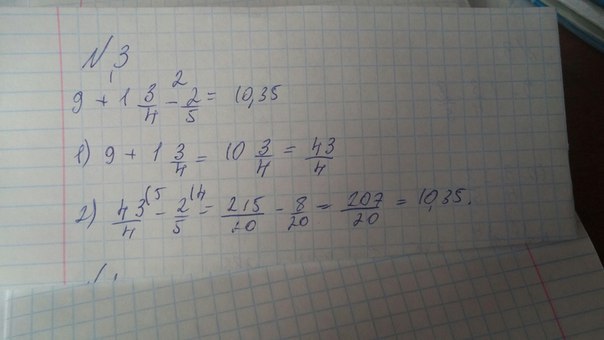 N 3
1 2
9 + 1 3/4 - 2/5 = 10,35
1) 9 + 1 3/4 = 10 3/4 = 43/4
2) 43/4 (5 - 2/5 (4 = 215/20 - 8/20 = 207/20 = 10,35.